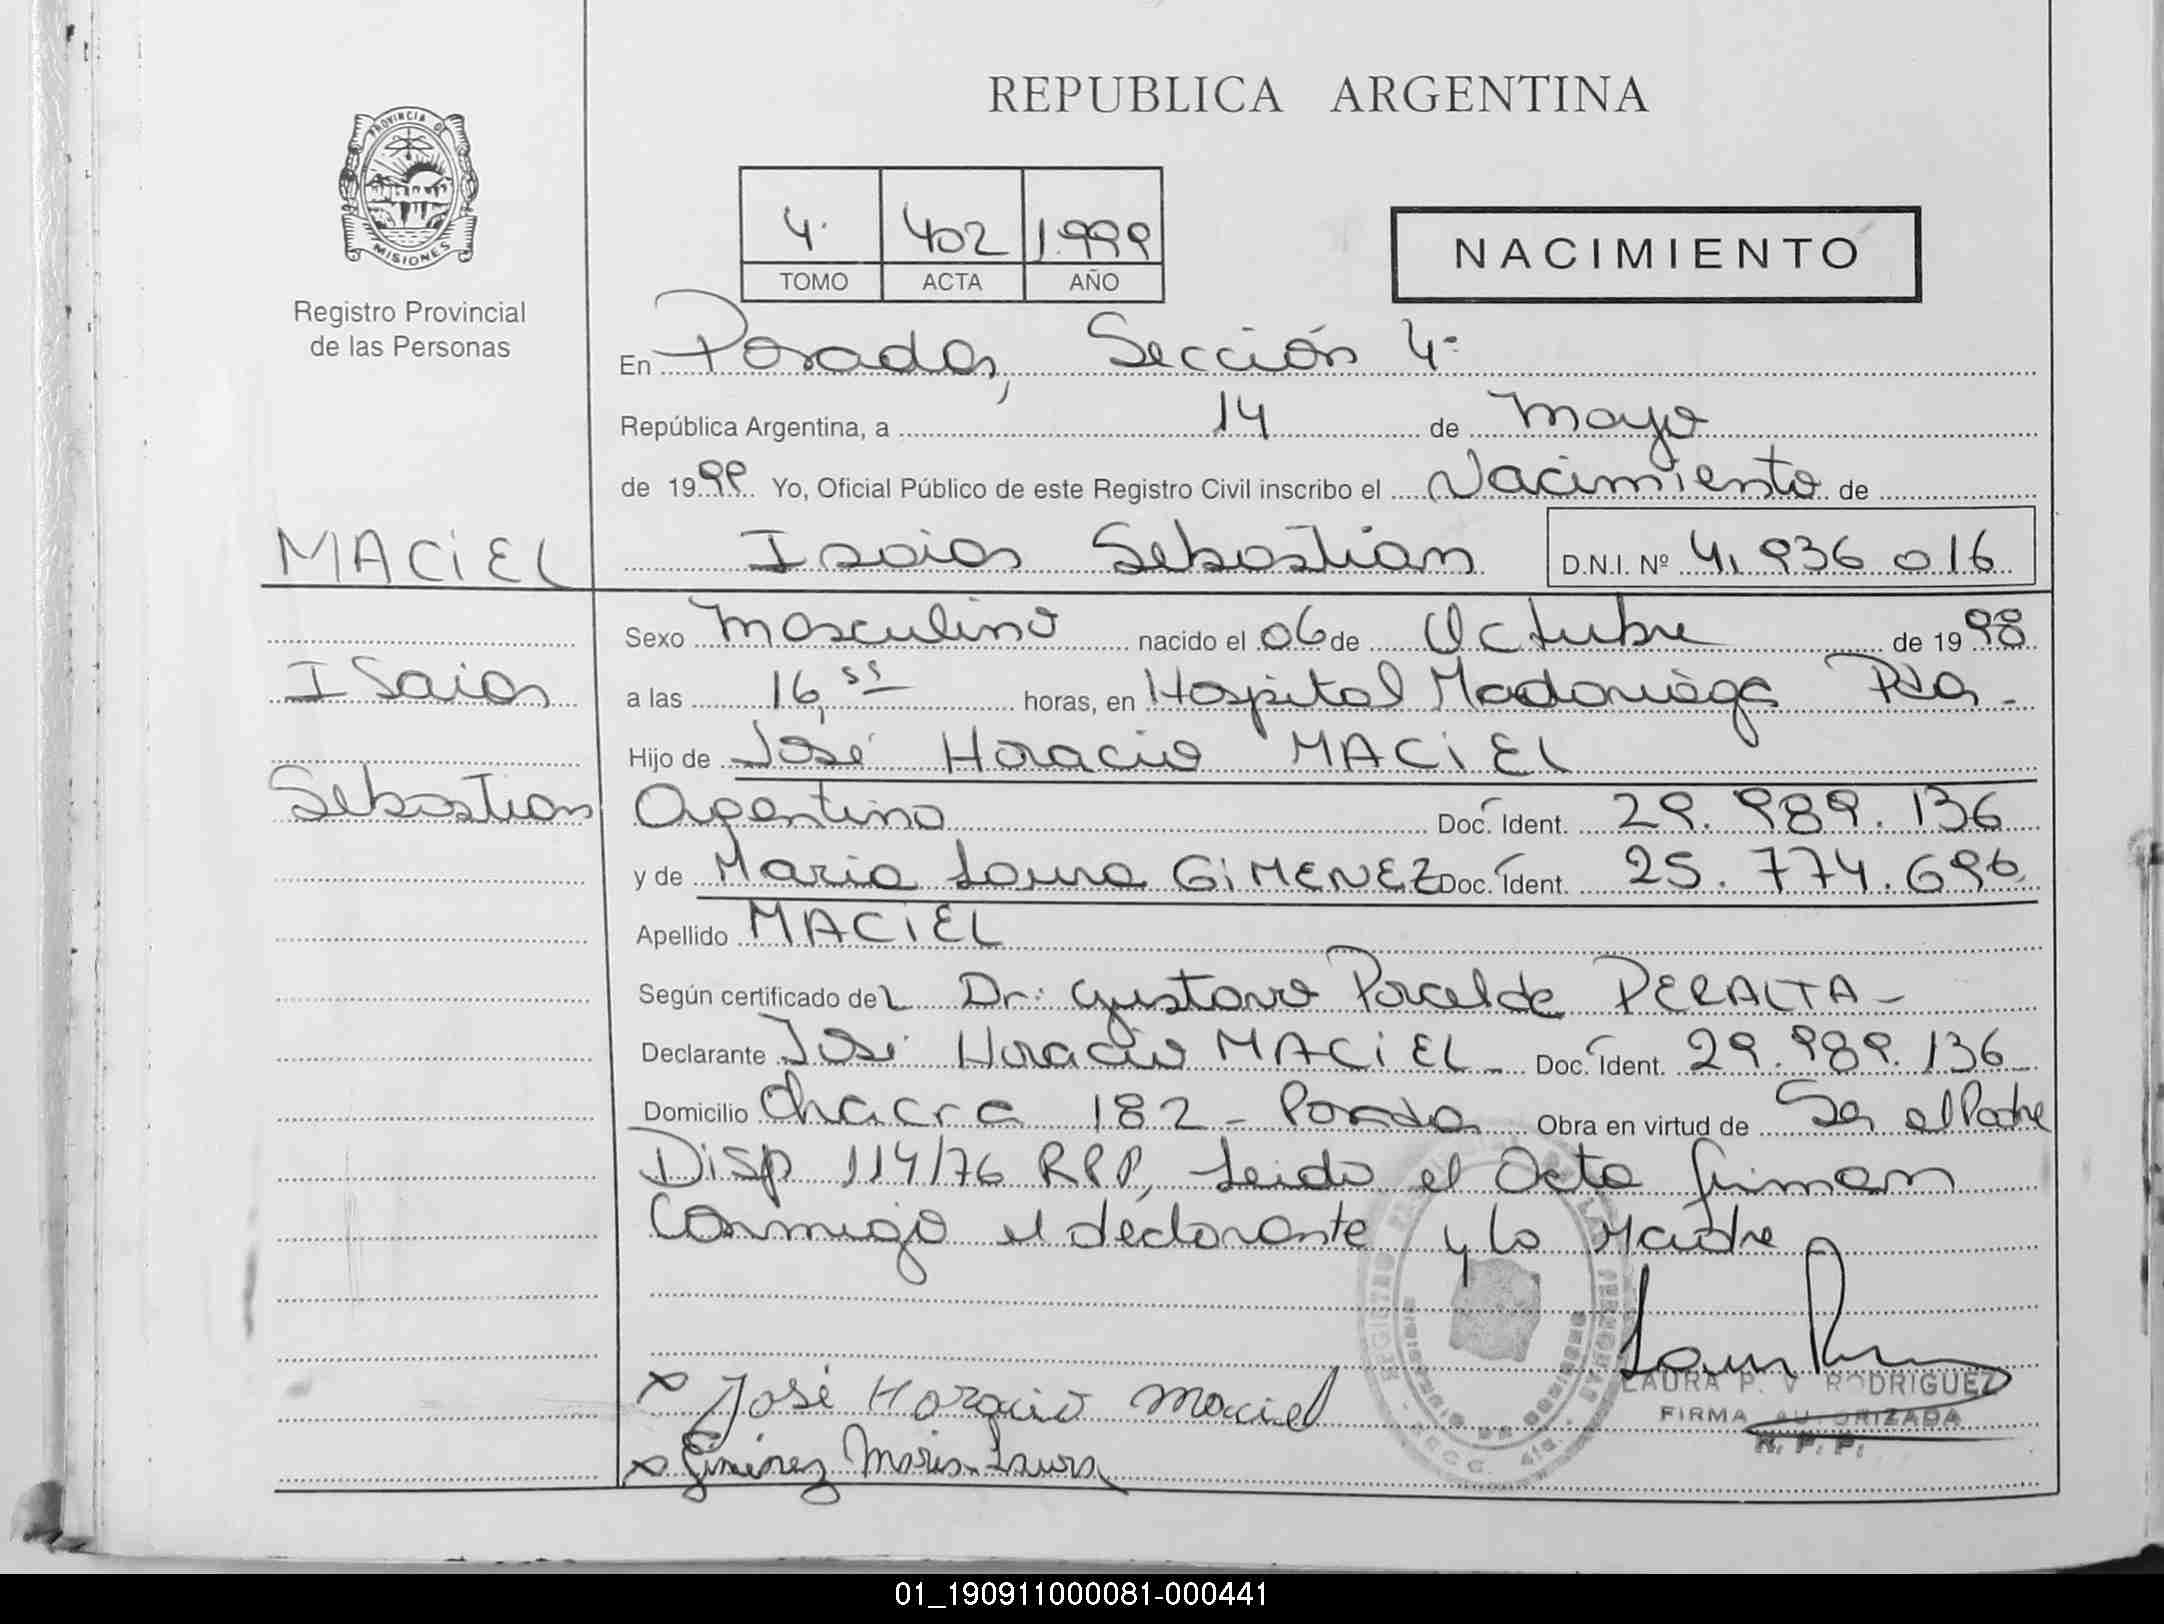 REPUBLICA ARGENTINA
PROVINCIA DE
MISIONES
Registro Provincial
de las Personas
4. 402 1.999
TOMO ACTA AÑO
NACIMIENTO
En Posadas, Sección 4ª
República Argentina, a 14 de Mayo
de 1999 Yo, Oficial Público de este Registro Civil inscribo el Nacimiento de
MACIEL
Isaias Sebastian D.N.I. Nº 41.936 016
Sexo Masculino nacido el 06 de Octubre de 1998
Isaias
a las 16,55 horas, en Hospital Madariaga Pdas -
Hijo de José Horacio MACIEL
Sebastian
Argentino Doc. Ident. 29.989.136
y de Maria Laura GIMENEZ Doc. Ident. 25.774.696
Apellido MACIEL
Según certificado del Dr: Gustavo PERALTA -
Declarante José Horacio MACIEL - Doc. Ident. 29.989.136
Domicilio Chacra 182 - Posadas Obra en virtud de Ser el Padre
Disp 114/76 RPP, Leido el Acta firman
Conmigo el declarante y la Madre
LAURA P. V. RODRIGUEZ
FIRMA AUTORIZADA
R. P. P.
x José Horacio Maciel
x Giménez Maria Laura
01_190911000081-000441